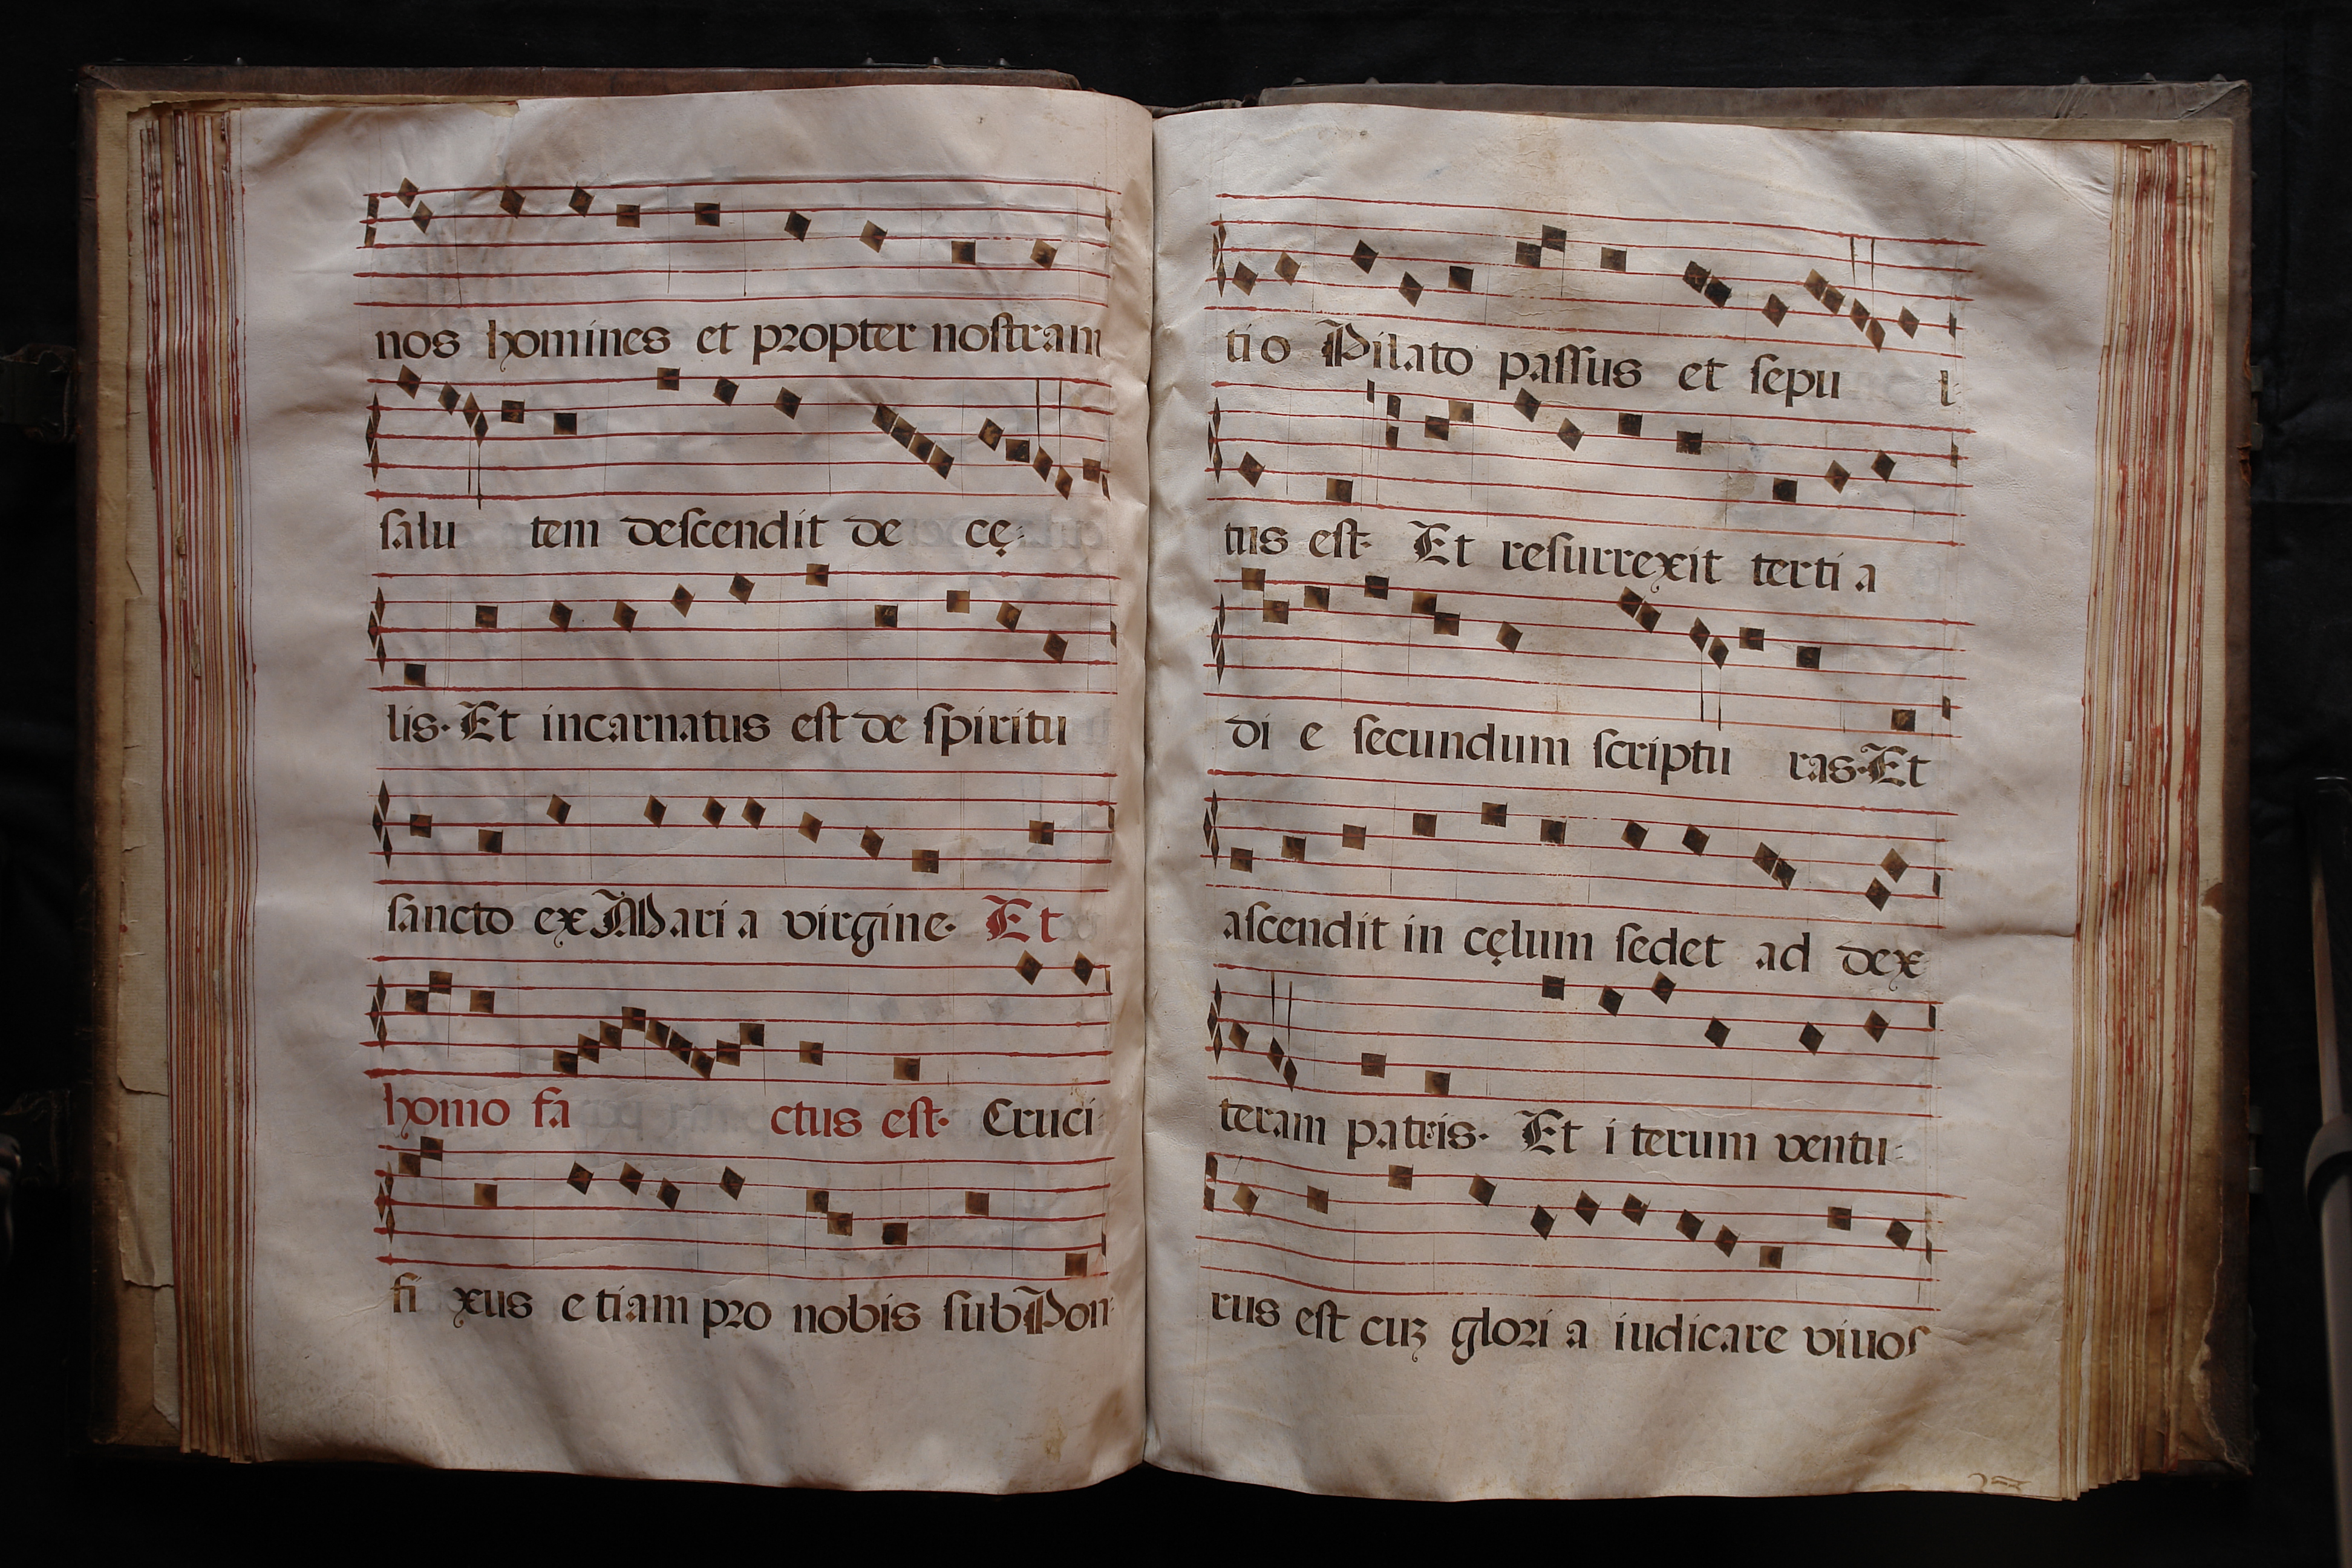 nos homines et propter nostram
salu tem descendit de cę
lis. Et incarnatus est de spiritu
sancto ex Mari a virgine. Et
homo fa ctus est. Cruci
fi xus e tiam pro nobis sub Pon
ti o Pilato passus et sepu l
tus est. Et resurrexit terti a
di e secundum scriptu ras. Et
ascendit in cęlum sedet ad dex
teram patris. Et i terum ventu
rus est cuʒ glori a iudicare viuos